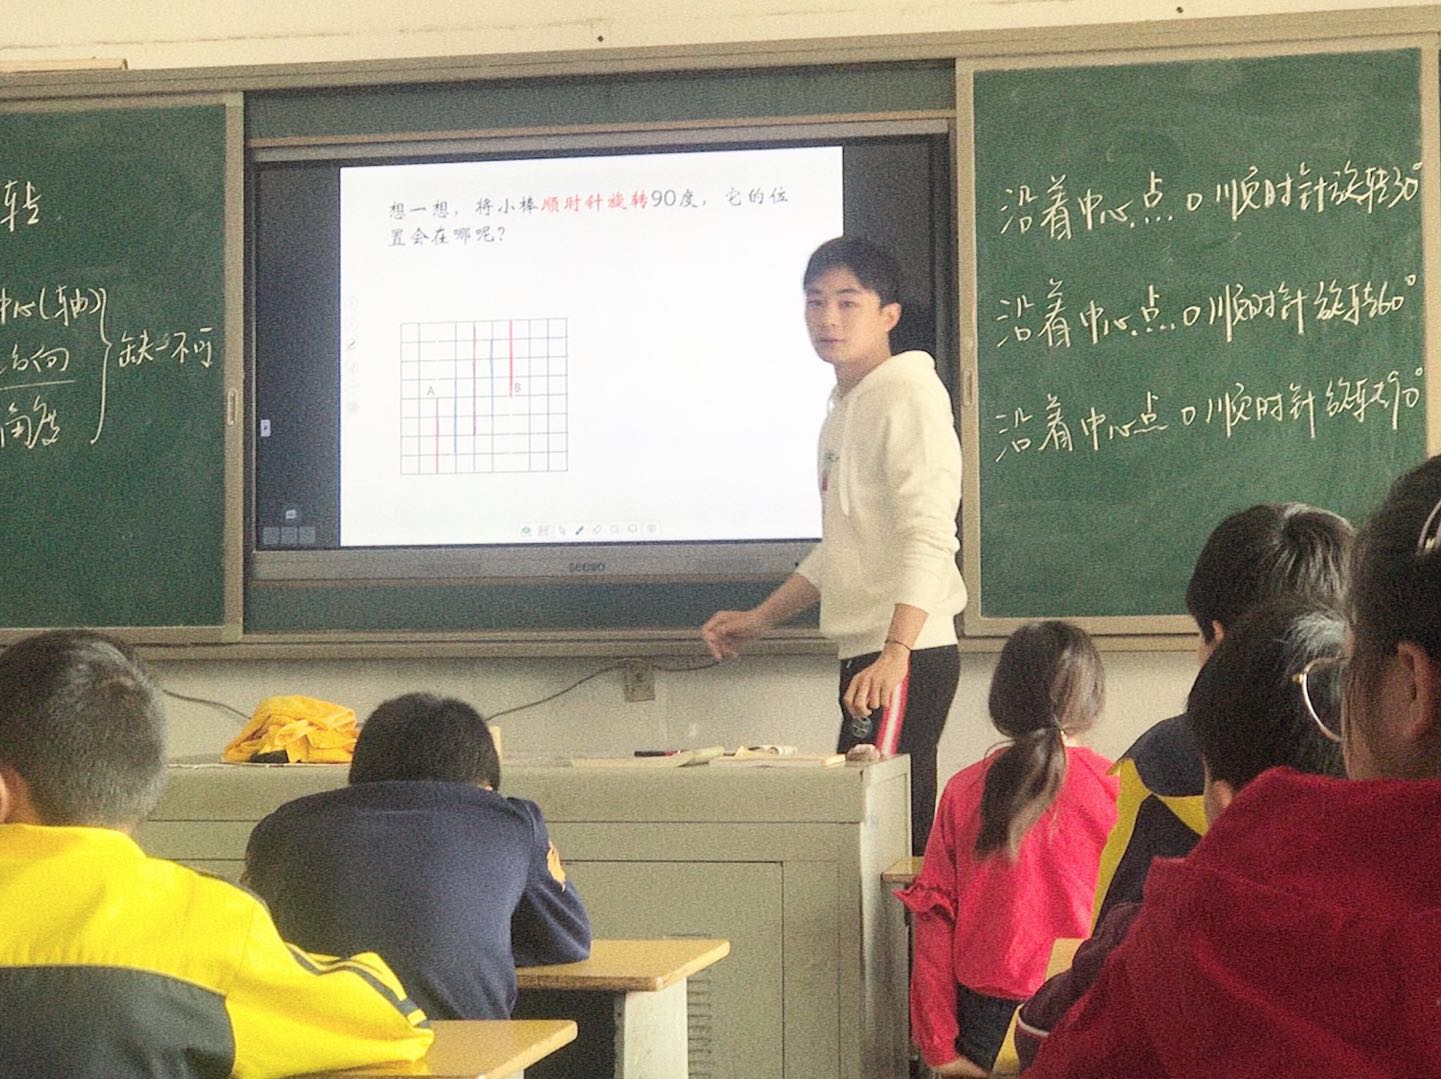 转
中心(轴)
方向
角度
缺一不可
想一想，将小棒顺时针旋转90度，它的位
置会在哪呢？
A
B
seewo
沿着中心点O顺时针旋转30°
沿着中心点O顺时针旋转60°
沿着中心点O顺时针旋转90°